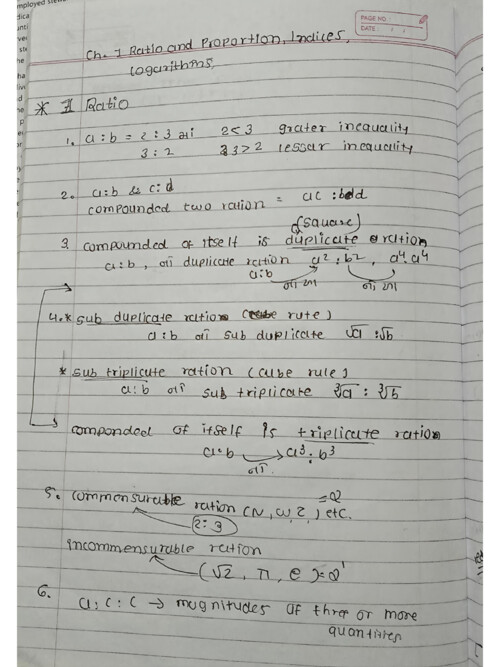 mployed
PAGE NO.
DATE: / /
Ch. 1 Ratio and Proportion, Indices,
Logarithms,
* 1 Ratio
1. a:b = 2:3 2<3 grater inequality
3:2 3>2 lessar inequality
2. a:b & c:d
compounded two ration = ac :bd
(square)
3. compounded of itself is duplicate ration
a:b, નાં duplicate ration a²:b², a⁴:a⁴
a:b
નો વગ નો વગ
4.* sub duplicate ration rute)
a:b નાં sub duplicate √a :√b
* sub triplicate ration (cube rule)
a:b નાં sub triplicate ∛a : ∛b
componded of itself is triplicate ration
a:b a³:b³
નાં.
5. commensurable ration (N, W, Z, ) etc. =Q
2:3
incommensurable ration
(√2, π, e)=Q'
6. a:c:c → magnitudes of three or more
quantities